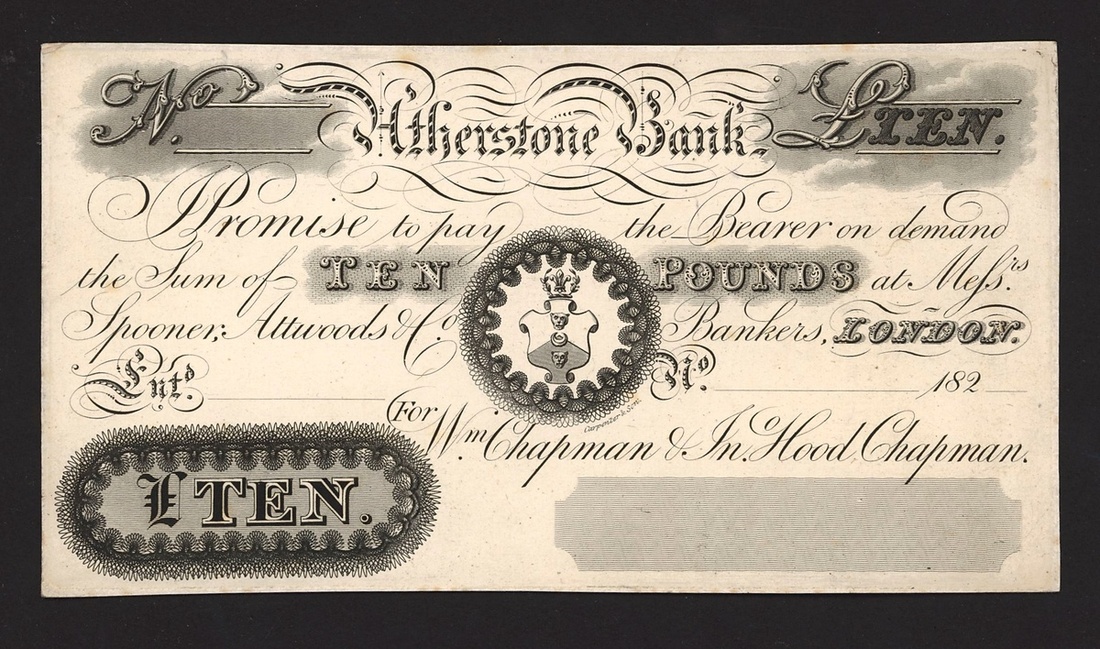 No. Atherstone Bank £TEN.
I Promise to pay the Bearer on demand
the Sum of TEN POUNDS at Messrs.
Spooner, Attwoods & Co. Bankers, LONDON.
Entd. No. 182
Carpenter & Son.
For Wm. Chapman & Jn. Hood Chapman.
£TEN.